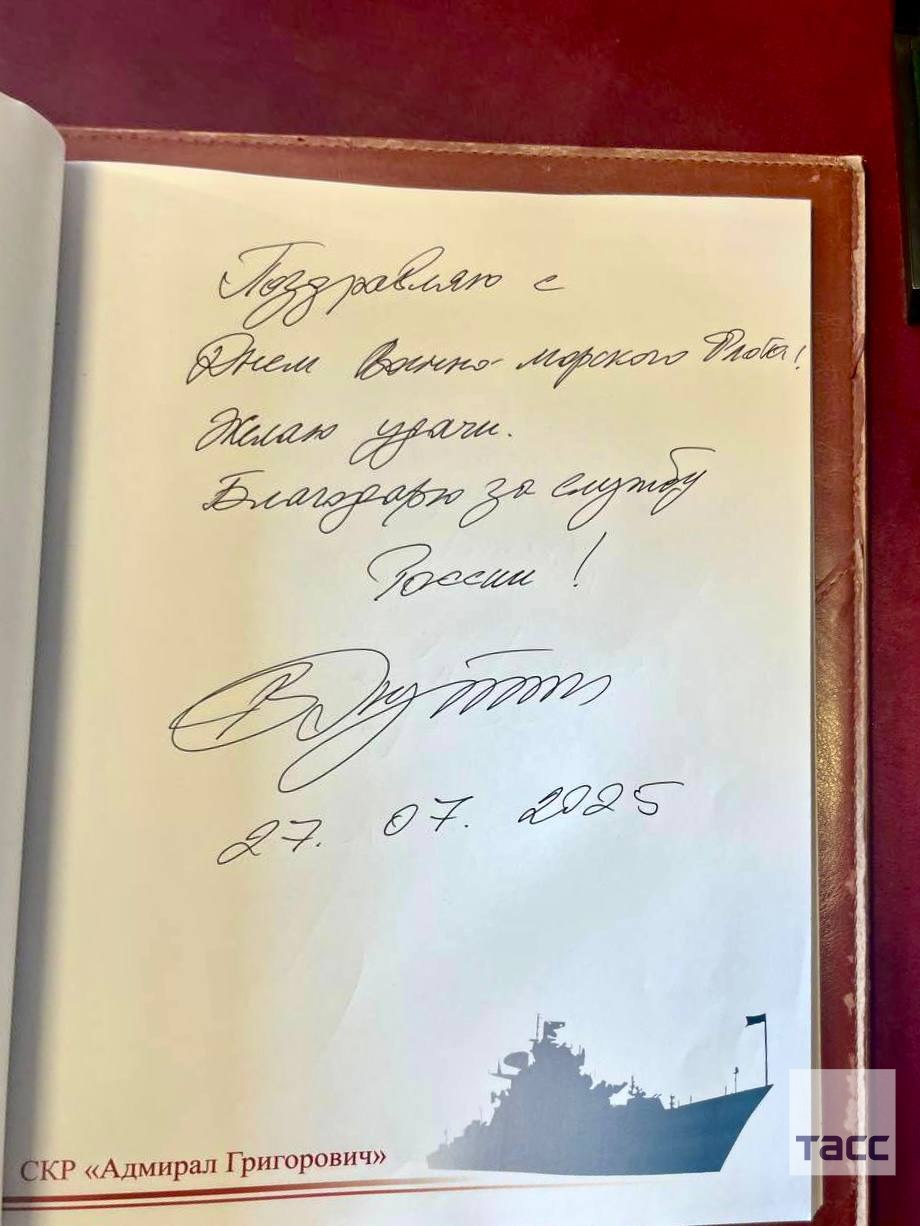 Поздравляю с
Днем Военно-морского Флота!
Желаю удачи.
Благодарю за службу
России!
В Путин
27. 07. 2025
СКР «Адмирал Григорович»
ТАСС